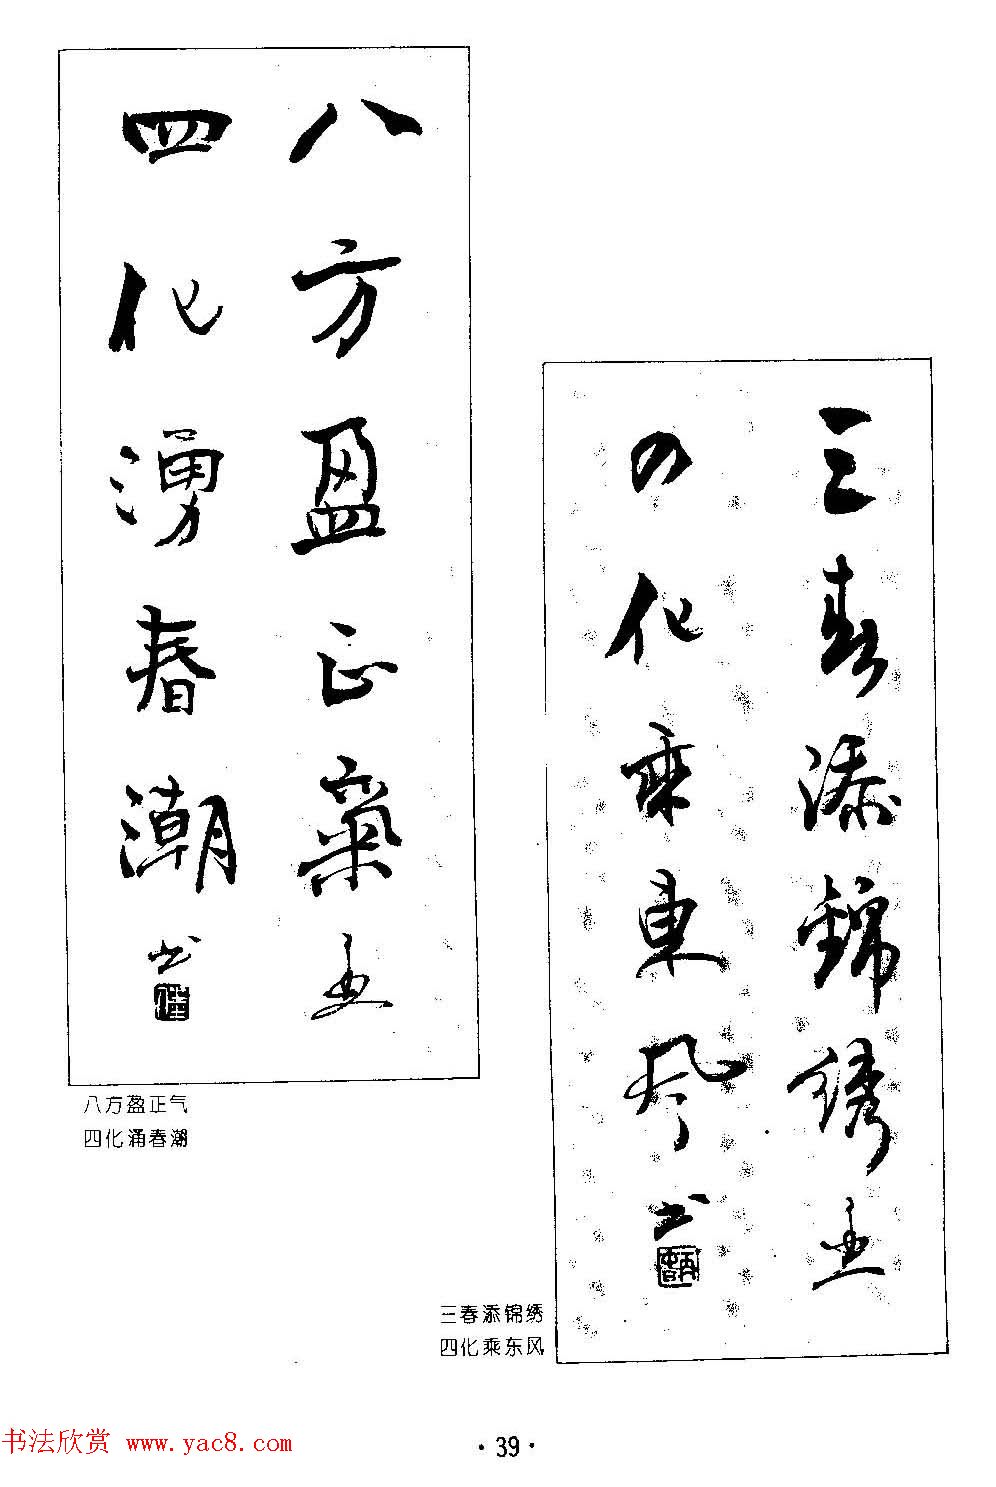 八方盈正氣
四化湧春潮
书
八方盈正气
四化涌春潮
三春添錦绣
四化乘東风
书
三春添锦绣
四化乘东风
书法欣赏 www.yac8.com
·39·